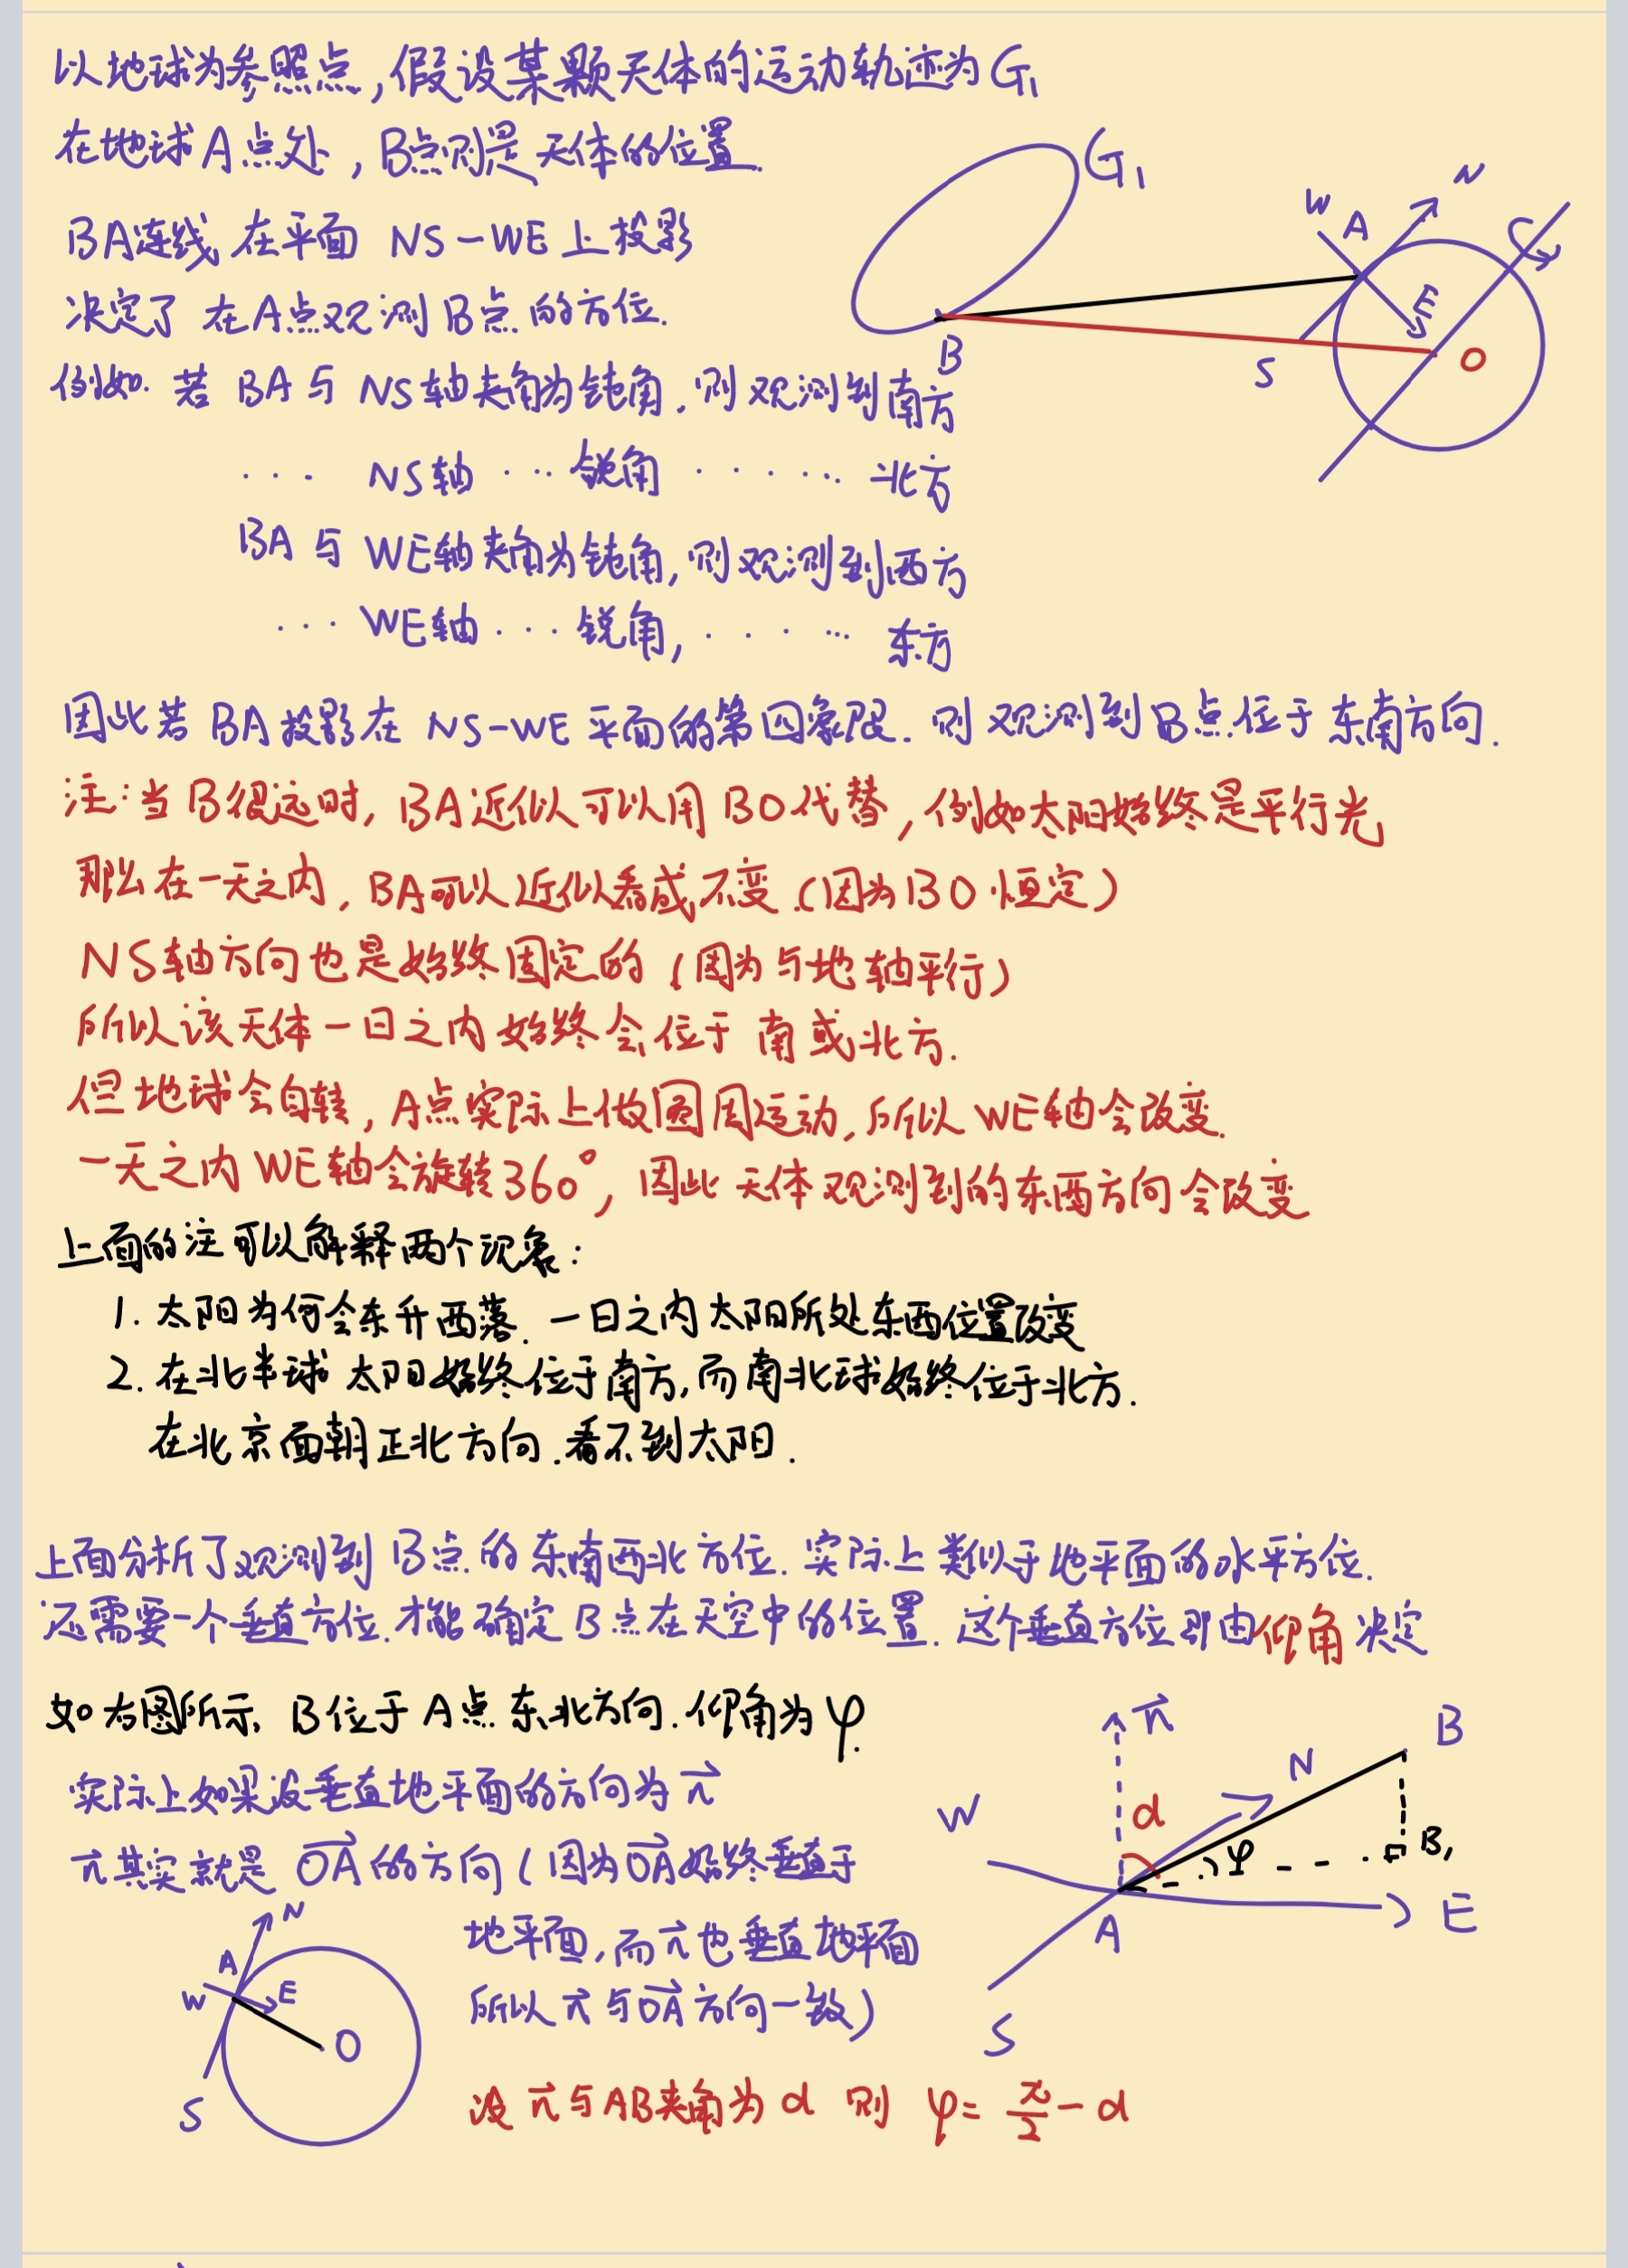 以地球为参照点,假设某颗天体的运动轨迹为G₁
在地球A点处,B点则是天体的位置.
G₁
N
W
A
E
S
B
O
BA连线,在平面 NS-WE上投影
决定了 在A点观测B点的方位.
例如. 若 BA与 NS轴夹角为钝角,则观测到南方
... NS轴 ... 锐角 ...... 北方
BA 与 WE轴夹角为钝角,则观测到西方
... WE轴 ... 锐角, ...... 东方
因此若 BA投影在 NS-WE 平面的第四象限. 则观测到B点位于东南方向.
注:当B很远时,BA近似可以用BO代替,例如太阳始终是平行光
那么在一天之内,BA可以近似看成不变.(因为BO恒定)
NS轴方向也是始终固定的(因为与地轴平行)
所以该天体一日之内始终会位于 南或北方.
但地球会自转,A点实际上做圆周运动,所以WE轴会改变.
一天之内WE轴会旋转360°,因此天体观测到的东西方向会改变
上面的注可以解释两个现象:
1. 太阳为何会东升西落. 一日之内太阳所处东西位置改变
2. 在北半球 太阳始终位于南方,而南北球始终位于北方.
在北京面朝正北方向.看不到太阳.
上面分析了观测到B点的东南西北方位. 实际上类似于地平面的水平方位.
还需要一个垂直方位.才能确定B点在天空中的位置. 这个垂直方位即由仰角决定
如右图所示, B位于A点东北方向.仰角为φ.
实际上如果设垂直地平面的方向为n⃗
n⃗其实就是 OA⃗的方向(因为OA⃗始终垂直于
地平面,而n⃗也垂直地平面
所以n⃗与OA⃗方向一致)
设 n⃗与AB夹角为α 则 φ= π/2 - α
n⃗
B
N
W
α
φ
B₁
E
A
S
N
A
W
E
O
S